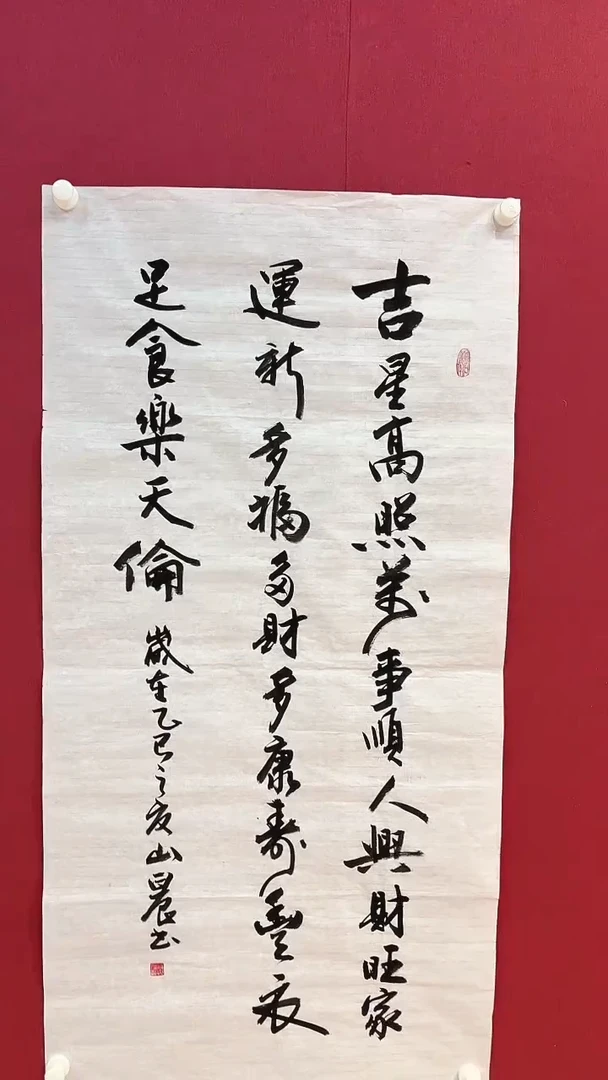 吉星高照萬事順人興財旺家
運新多福多財多康壽豐衣
足食樂天倫
歲在乙巳之夏山晨书